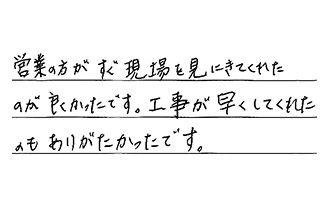 営業の方がすぐ現場を見にきてくれた
のが良くかったです。工事が早くしてくれた
のもありがたかったです。